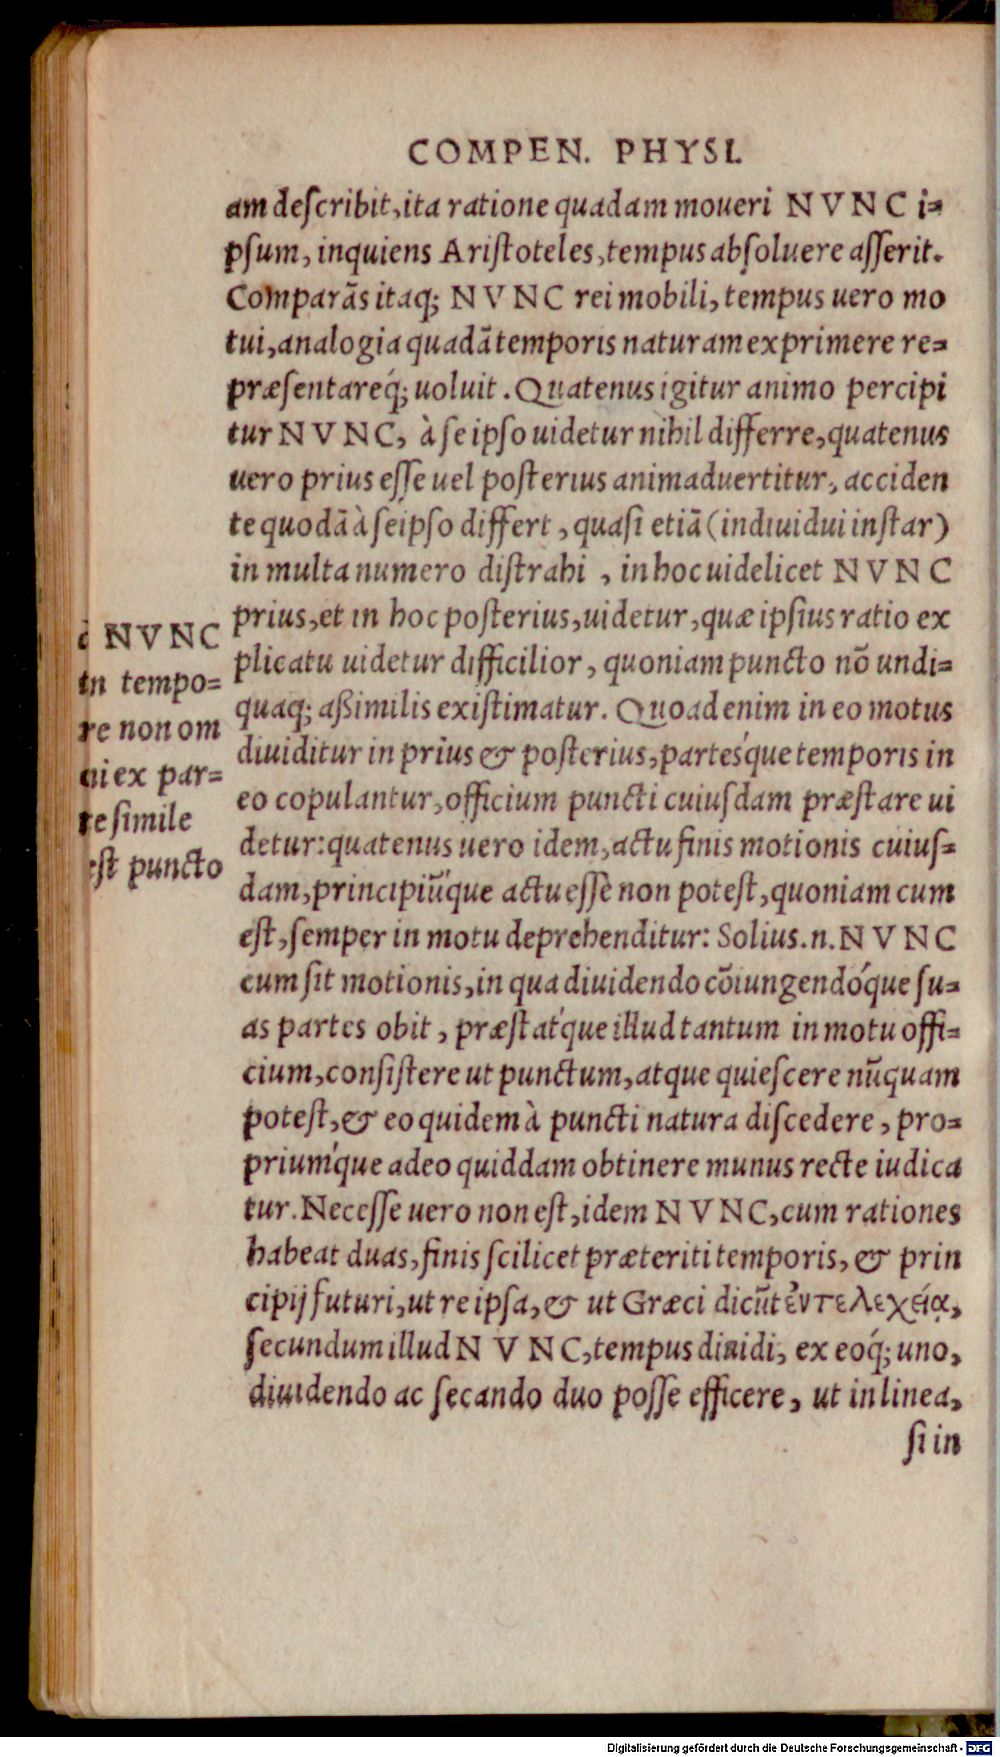 COMPEN. PHYSI.
am deſcribit, ita ratione quadam moueri NVNC i-
pſum, inquiens Ariſtoteles, tempus abſoluere aſſerit.
Comparãs itaq; NVNC rei mobili, tempus uero mo
tui, analogia quadã temporis naturam exprimere re-
præſentareq́; uoluit. Quatenus igitur animo percipi
tur NVNC, à ſe ipſo uidetur nihil differre, quatenus
uero prius eſſe uel poſterius animaduertitur, acciden
te quodã à ſeipſo differt, quaſi etiã (indiuidui inſtar)
in multa numero diſtrahi, in hoc uidelicet NVNC
prius, et in hoc poſterius, uidetur, quæ ipſius ratio ex
plicatu uidetur difficilior, quoniam puncto nõ undi-
quaq; aßimilis exiſtimatur. Quoad enim in eo motus
diuiditur in prius & poſterius, parteśque temporis in
eo copulantur, officium puncti cuiuſdam præſtare ui
detur: quatenus uero idem, actu finis motionis cuiuſ-
dam, principiṹque actu eſſe non poteſt, quoniam cum
eſt, ſemper in motu deprehenditur: Solius.n. NVNC
cum ſit motionis, in qua diuidendo cõiungendó́que ſu-
as partes obit, præſtat́que illud tantum in motu offi-
cium, conſiſtere ut punctum, atque quieſcere nũquam
poteſt, & eo quidem à puncti natura diſcedere, pro-
priuḿque adeo quiddam obtinere munus recte iudica
tur. Neceſſe uero non eſt, idem NVNC, cum rationes
habeat duas, finis ſcilicet præteriti temporis, & prin
cipij futuri, ut re ipſa, & ut Græci dicũt ἐντελεχείᾳ,
ſecundum illud NVNC, tempus diuidi, ex eoq́; uno,
diuidendo ac ſecando duo poſſe efficere, ut in linea,
ſi in
NVNC
in tempo-
re non om
ni ex par-
te ſimile
eſt puncto
Digitalisierung gefördert durch die Deutsche Forschungsgemeinschaft - DFG